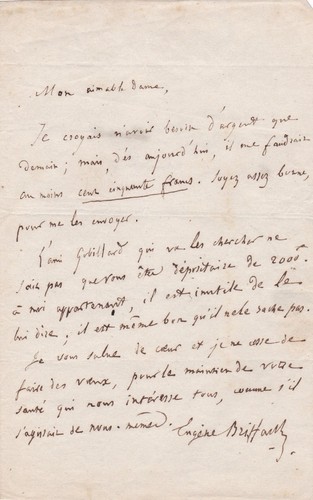 Mon aimable Dame,
Je croyais n'avoir besoin d'argent que
demain; mais, dès aujourd'hui, il me faudrait
au moins cent cinquante francs. Soyez assez bonne,
pour me les envoyer.
L'ami qui va les chercher ne
sait pas que vous êtes dépositaire de 2000f
à moi appartenant, il est inutile de le
lui dire; il est même bon qu'il ne le sache pas.
Je vous salue de cœur et je ne cesse de
faire des vœux, pour le maintien de votre
santé qui nous intéresse tous, comme s'il
s'agissait de nous-mêmes. Eugène Briffault